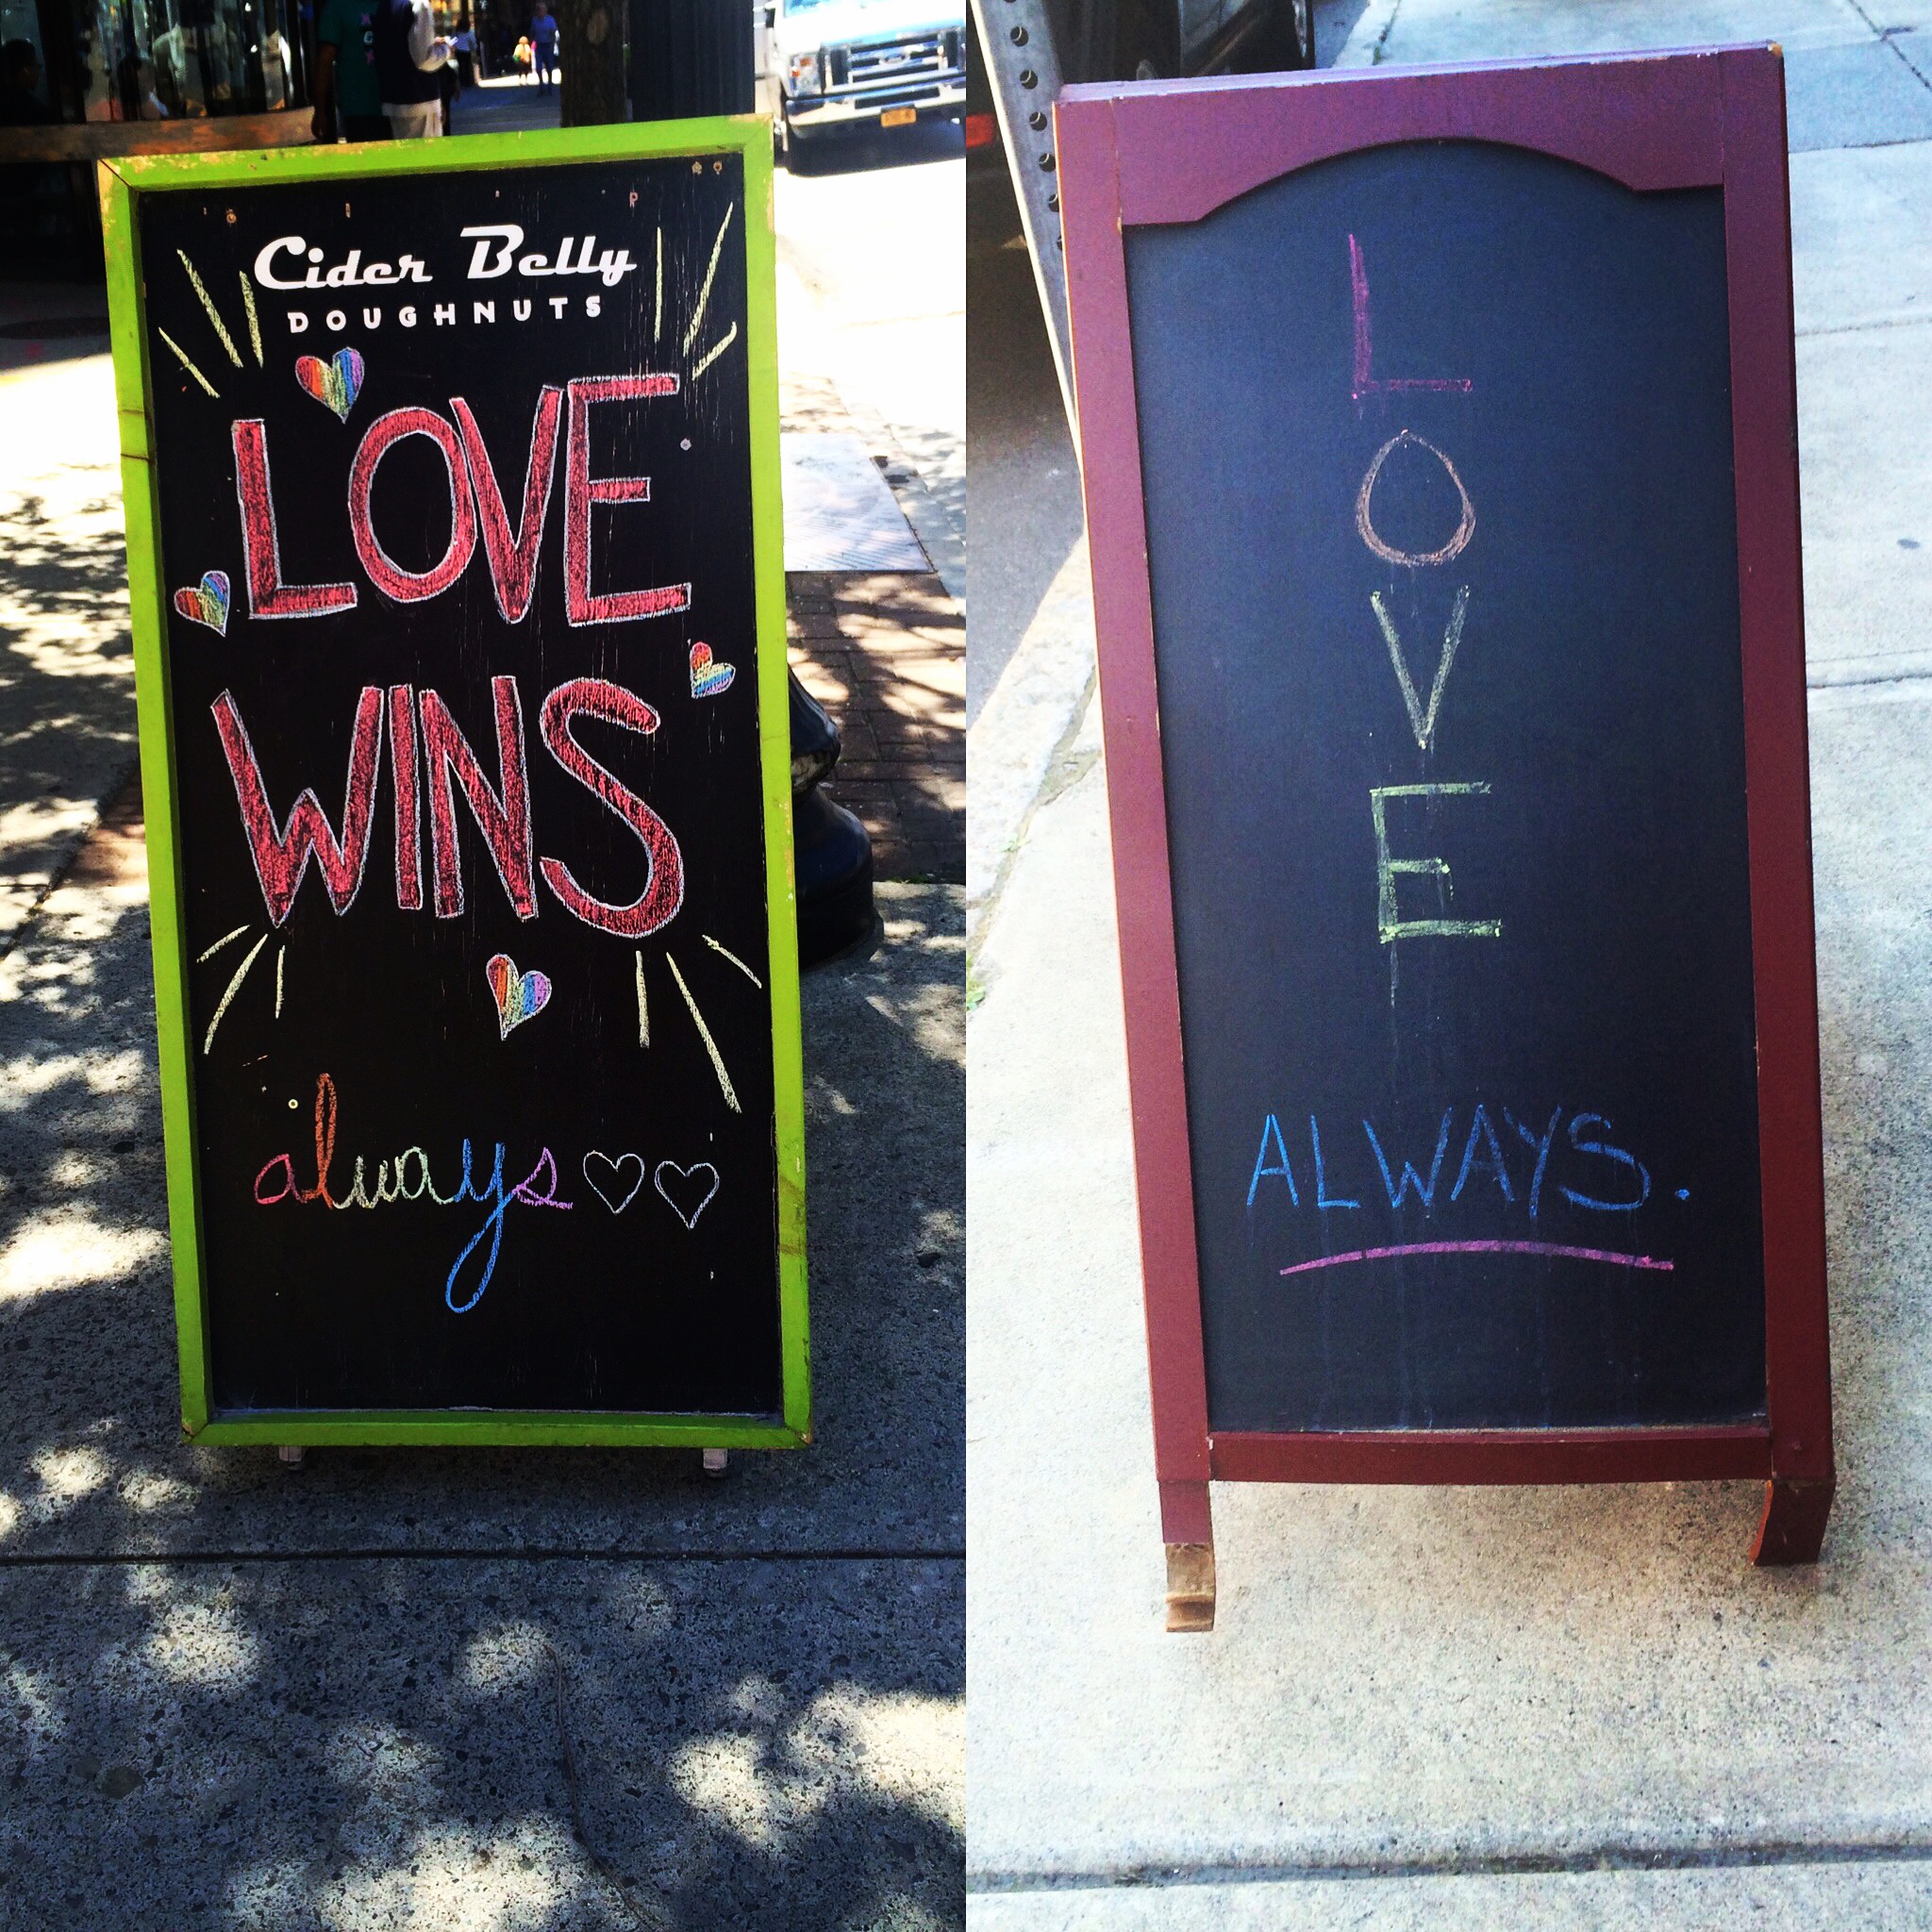 Cider Belly
DOUGHNUTS
LOVE
WINS
always
L
O
V
E
ALWAYS.